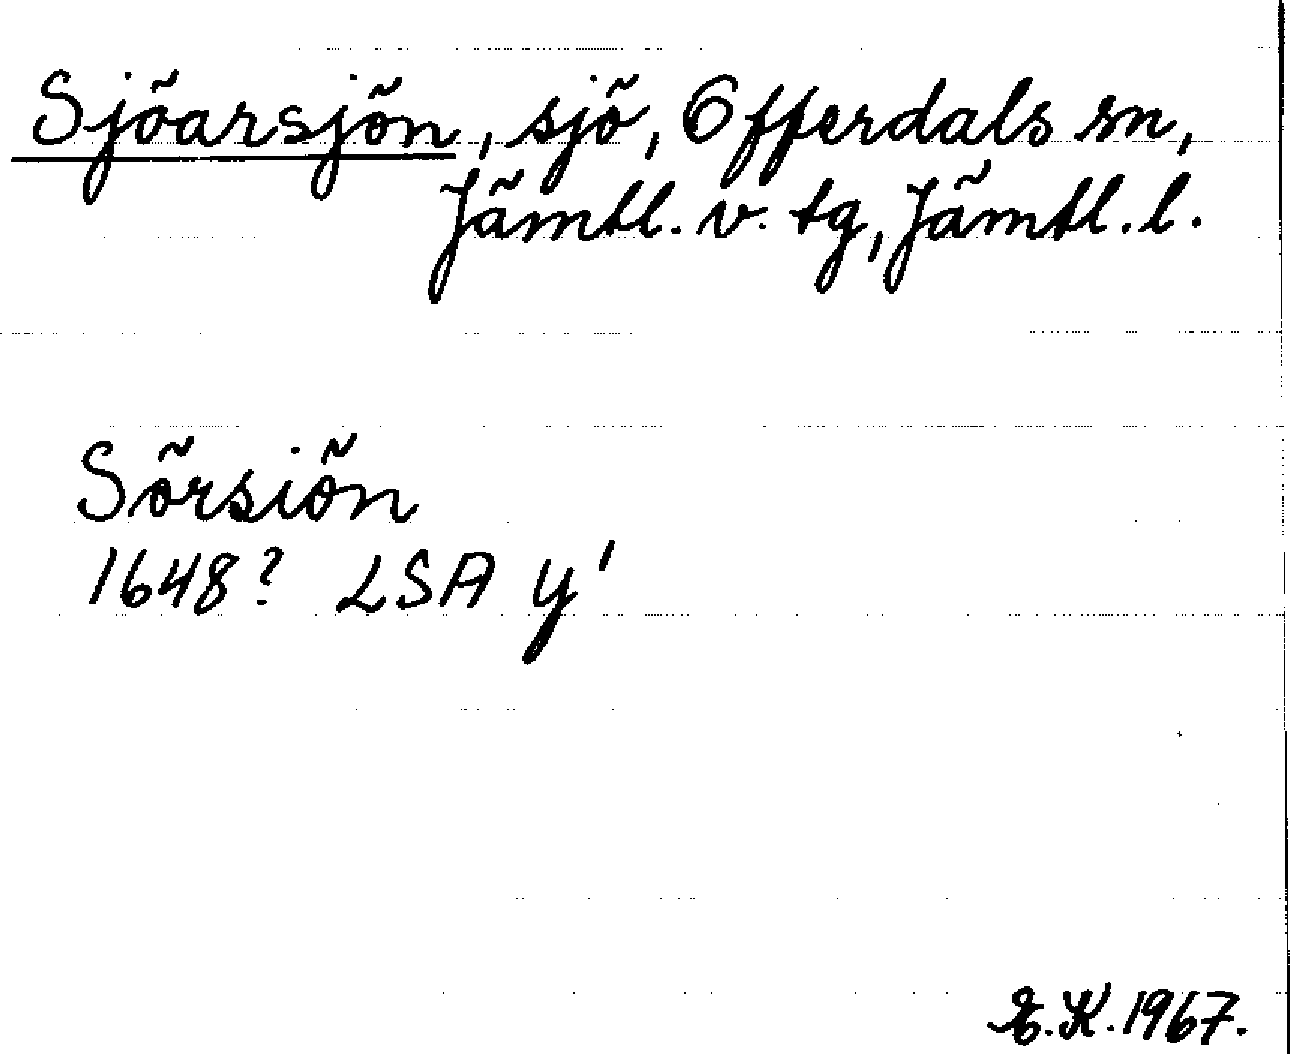 Sjöarsjön, sjö, Offerdals sn,
Jämtl. v. tg, Jämtl. l.
Sörsiön
1648? LSA y'
E.K. 1967.